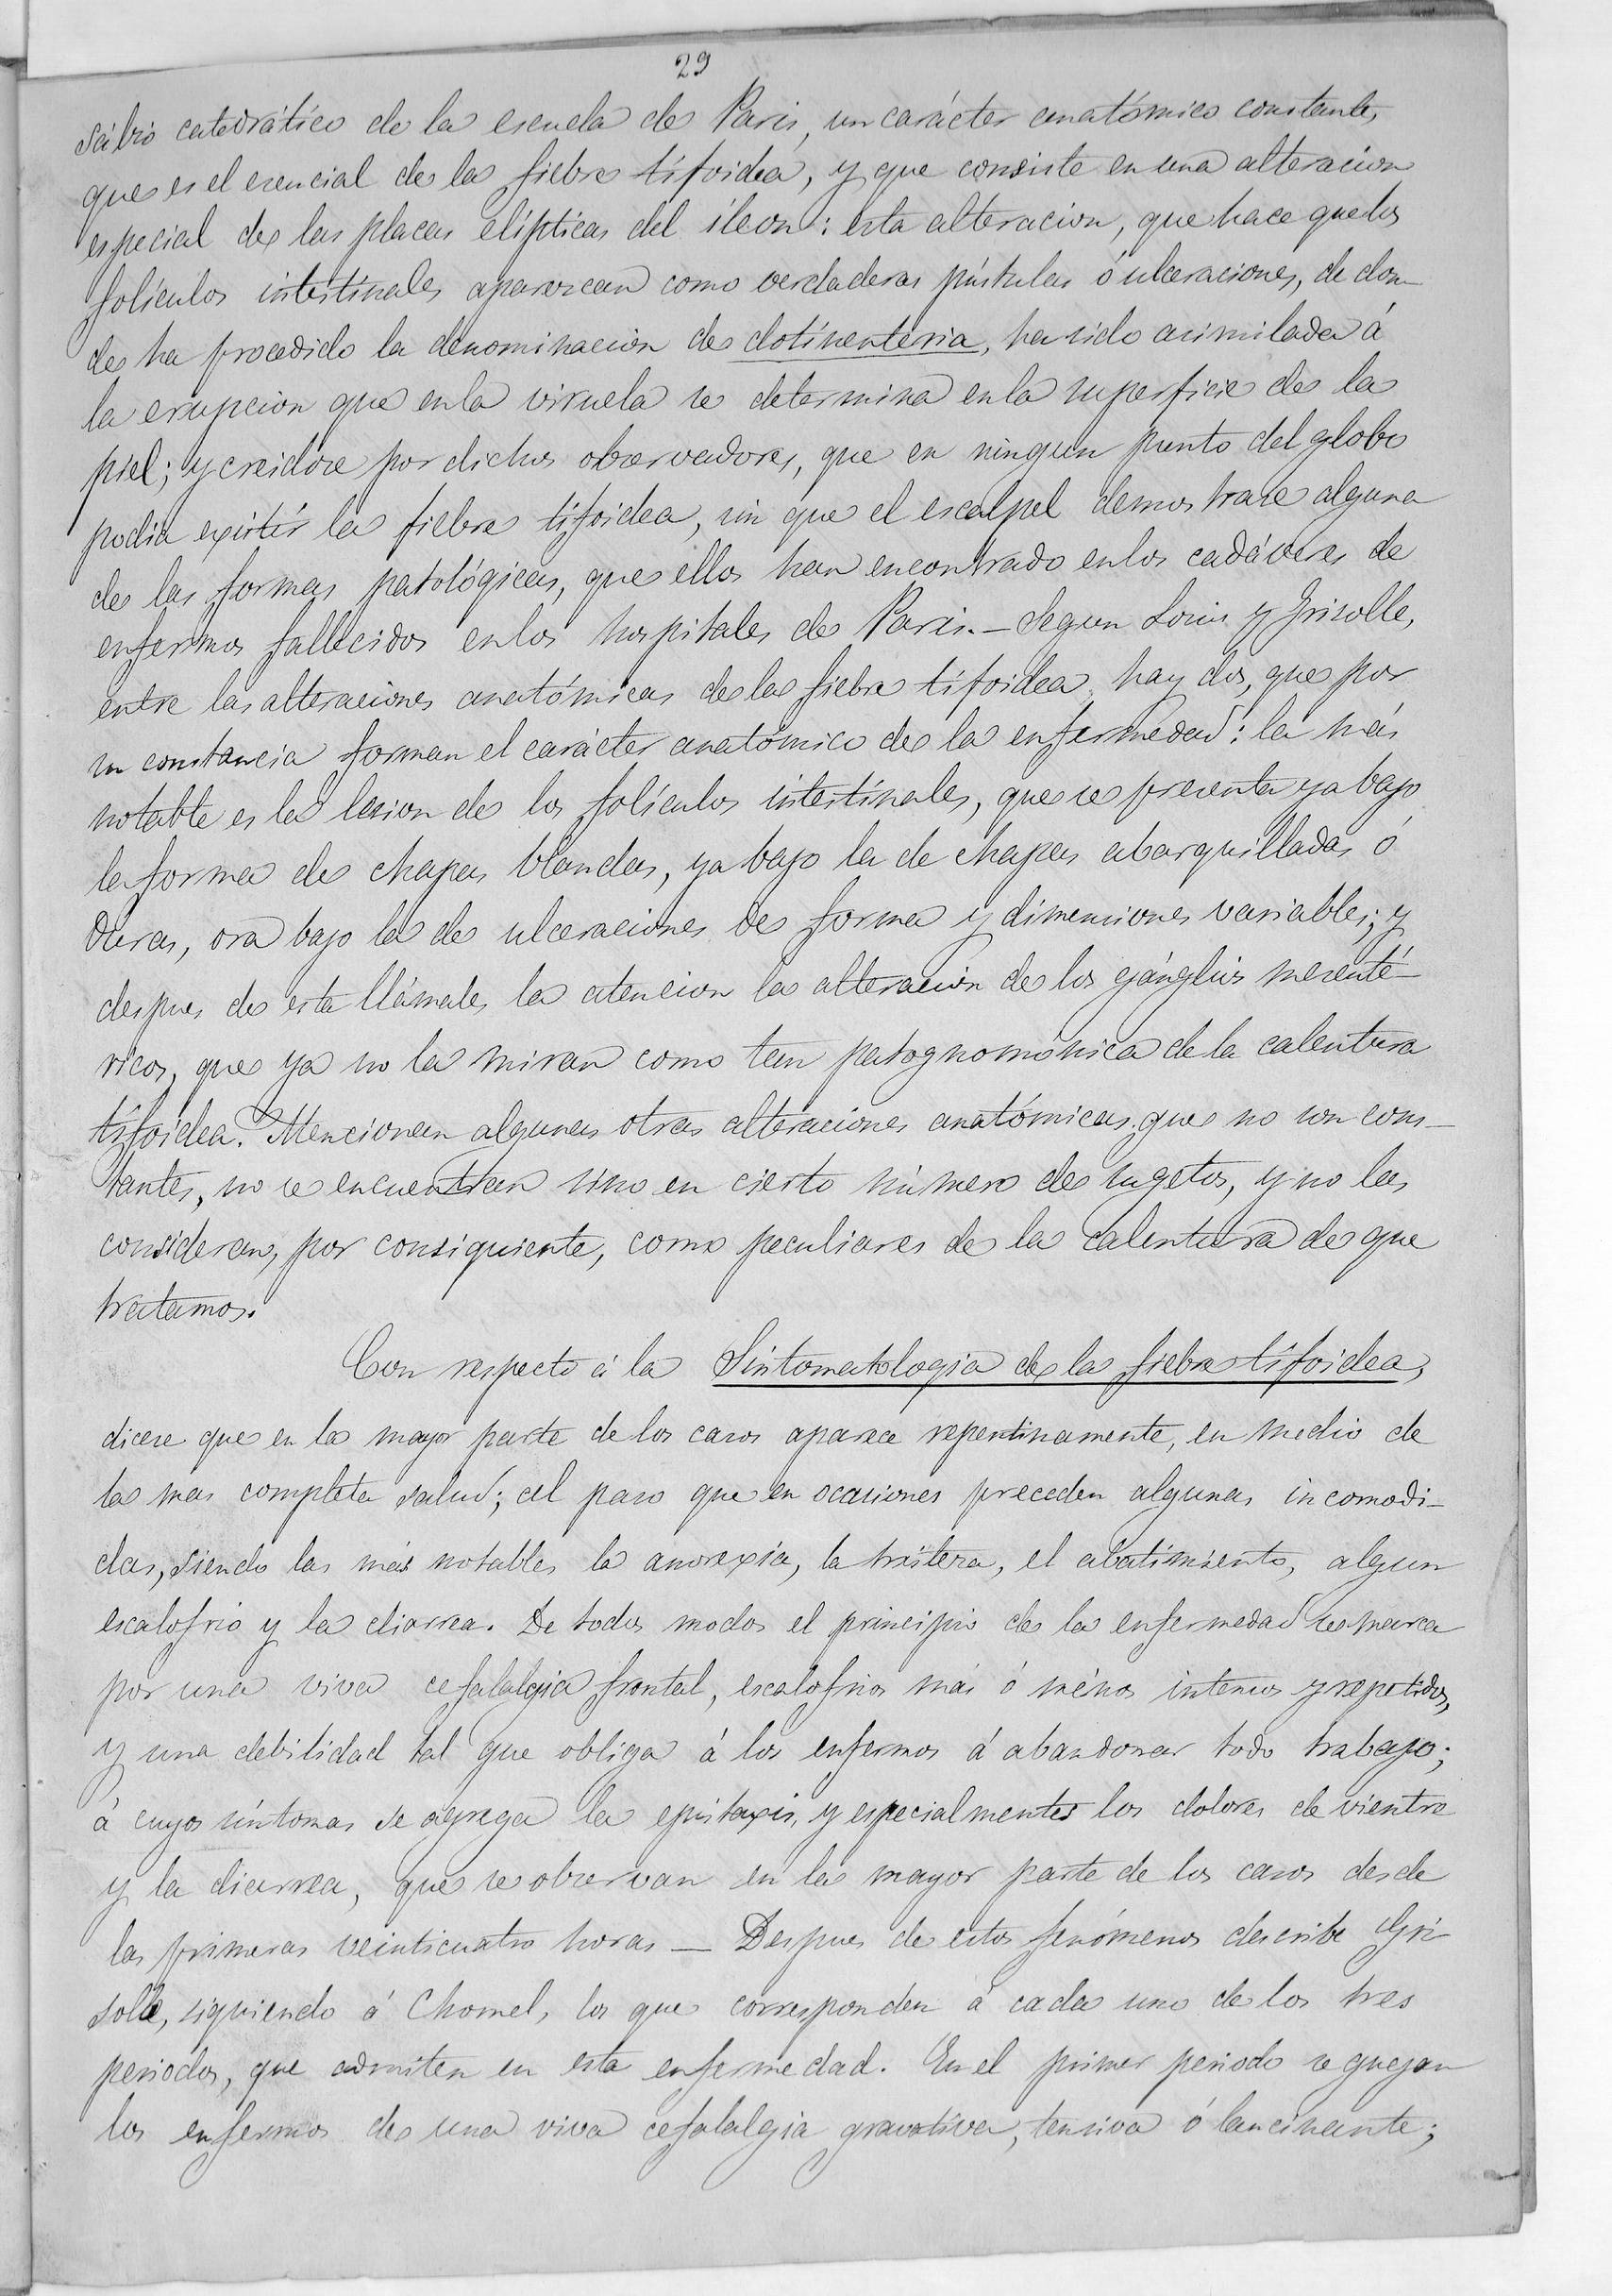 29
sábio catedrático de la escuela de Paris, un carácter anatómico constante,
que es el esencial de la fiebre tifoidea, y que consiste en una alteracion
especial de las placas elípticas del íleon: esta alteracion, que hace que los
folículos intestinales aparezcan como verdaderas pústulas ó ulceraciones, de don-
de ha procedido la denominacion de dotinenteria, ha sido asimilada á
la erupcion que en la viruela se determina en la superficie de la
piel; y creidose por dichos observadores, que en ningun punto del globo
podia existir la fiebre tifoidea, sin que el escalpel demostrase alguna
de las formas patológicas, que ellos han encontrado en los cadáveres de
enfermos fallecidos en los hospitales de Paris. — Segun Louis y Grisolle,
entre las alteraciones anatómicas de la fiebre tifoidea, hay dos, que por
su constancia forman el carácter anatómico de la enfermedad: la más
notable es la lesion de los folículos intestinales, que se presenta ya bajo
la forma de chapas blandas, ya bajo la de chapas abarquilladas ó
duras, ora bajo la de ulceraciones de forma y dimensiones variables; y
despues de esta llámales la atencion la alteracion de los gánglios mesenté-
ricos, que ya no la miran como tan patognomónica de la calentura
tifoidea. Mencionan algunas otras alteraciones anatómicas, que no son cons-
tantes, no se encuentran sino en cierto número de sugetos, y no las
consideran, por consiguiente, como peculiares de la calentura de que
tratamos.
Con respecto á la Sintomatologia de la fiebre tifoidea,
dicese que en la mayor parte de los casos aparece repentinamente, en medio de
la mas completa salud; al paso que en ocasiones preceden algunas incomodi-
das, siendo las más notables la anorexia, la tristeza, el abatimiento, algun
escalofrio y la diarrea. De todos modos el principio de la enfermedad se marca
por una viva cefalalgia frontal, escalofrios más ó ménos intensos y repetidos,
y una debilidad tal que obliga á los enfermos á abandonar todo trabajo;
á cuyos síntomas se agrega la epistaxis, y especialmente los dolores de vientre
y la diarrea, que se observan en la mayor parte de los casos desde
las primeras veinticuatro horas — Despues de estos fenómenos describe Gri-
solle, siguiendo á Chomel, los que corresponden á cada uno de los tres
periodos, que admiten en esta enfermedad. En el primer periodo se quejan
los enfermos de una viva cefalalgia gravativa, tensiva ó lancinante;